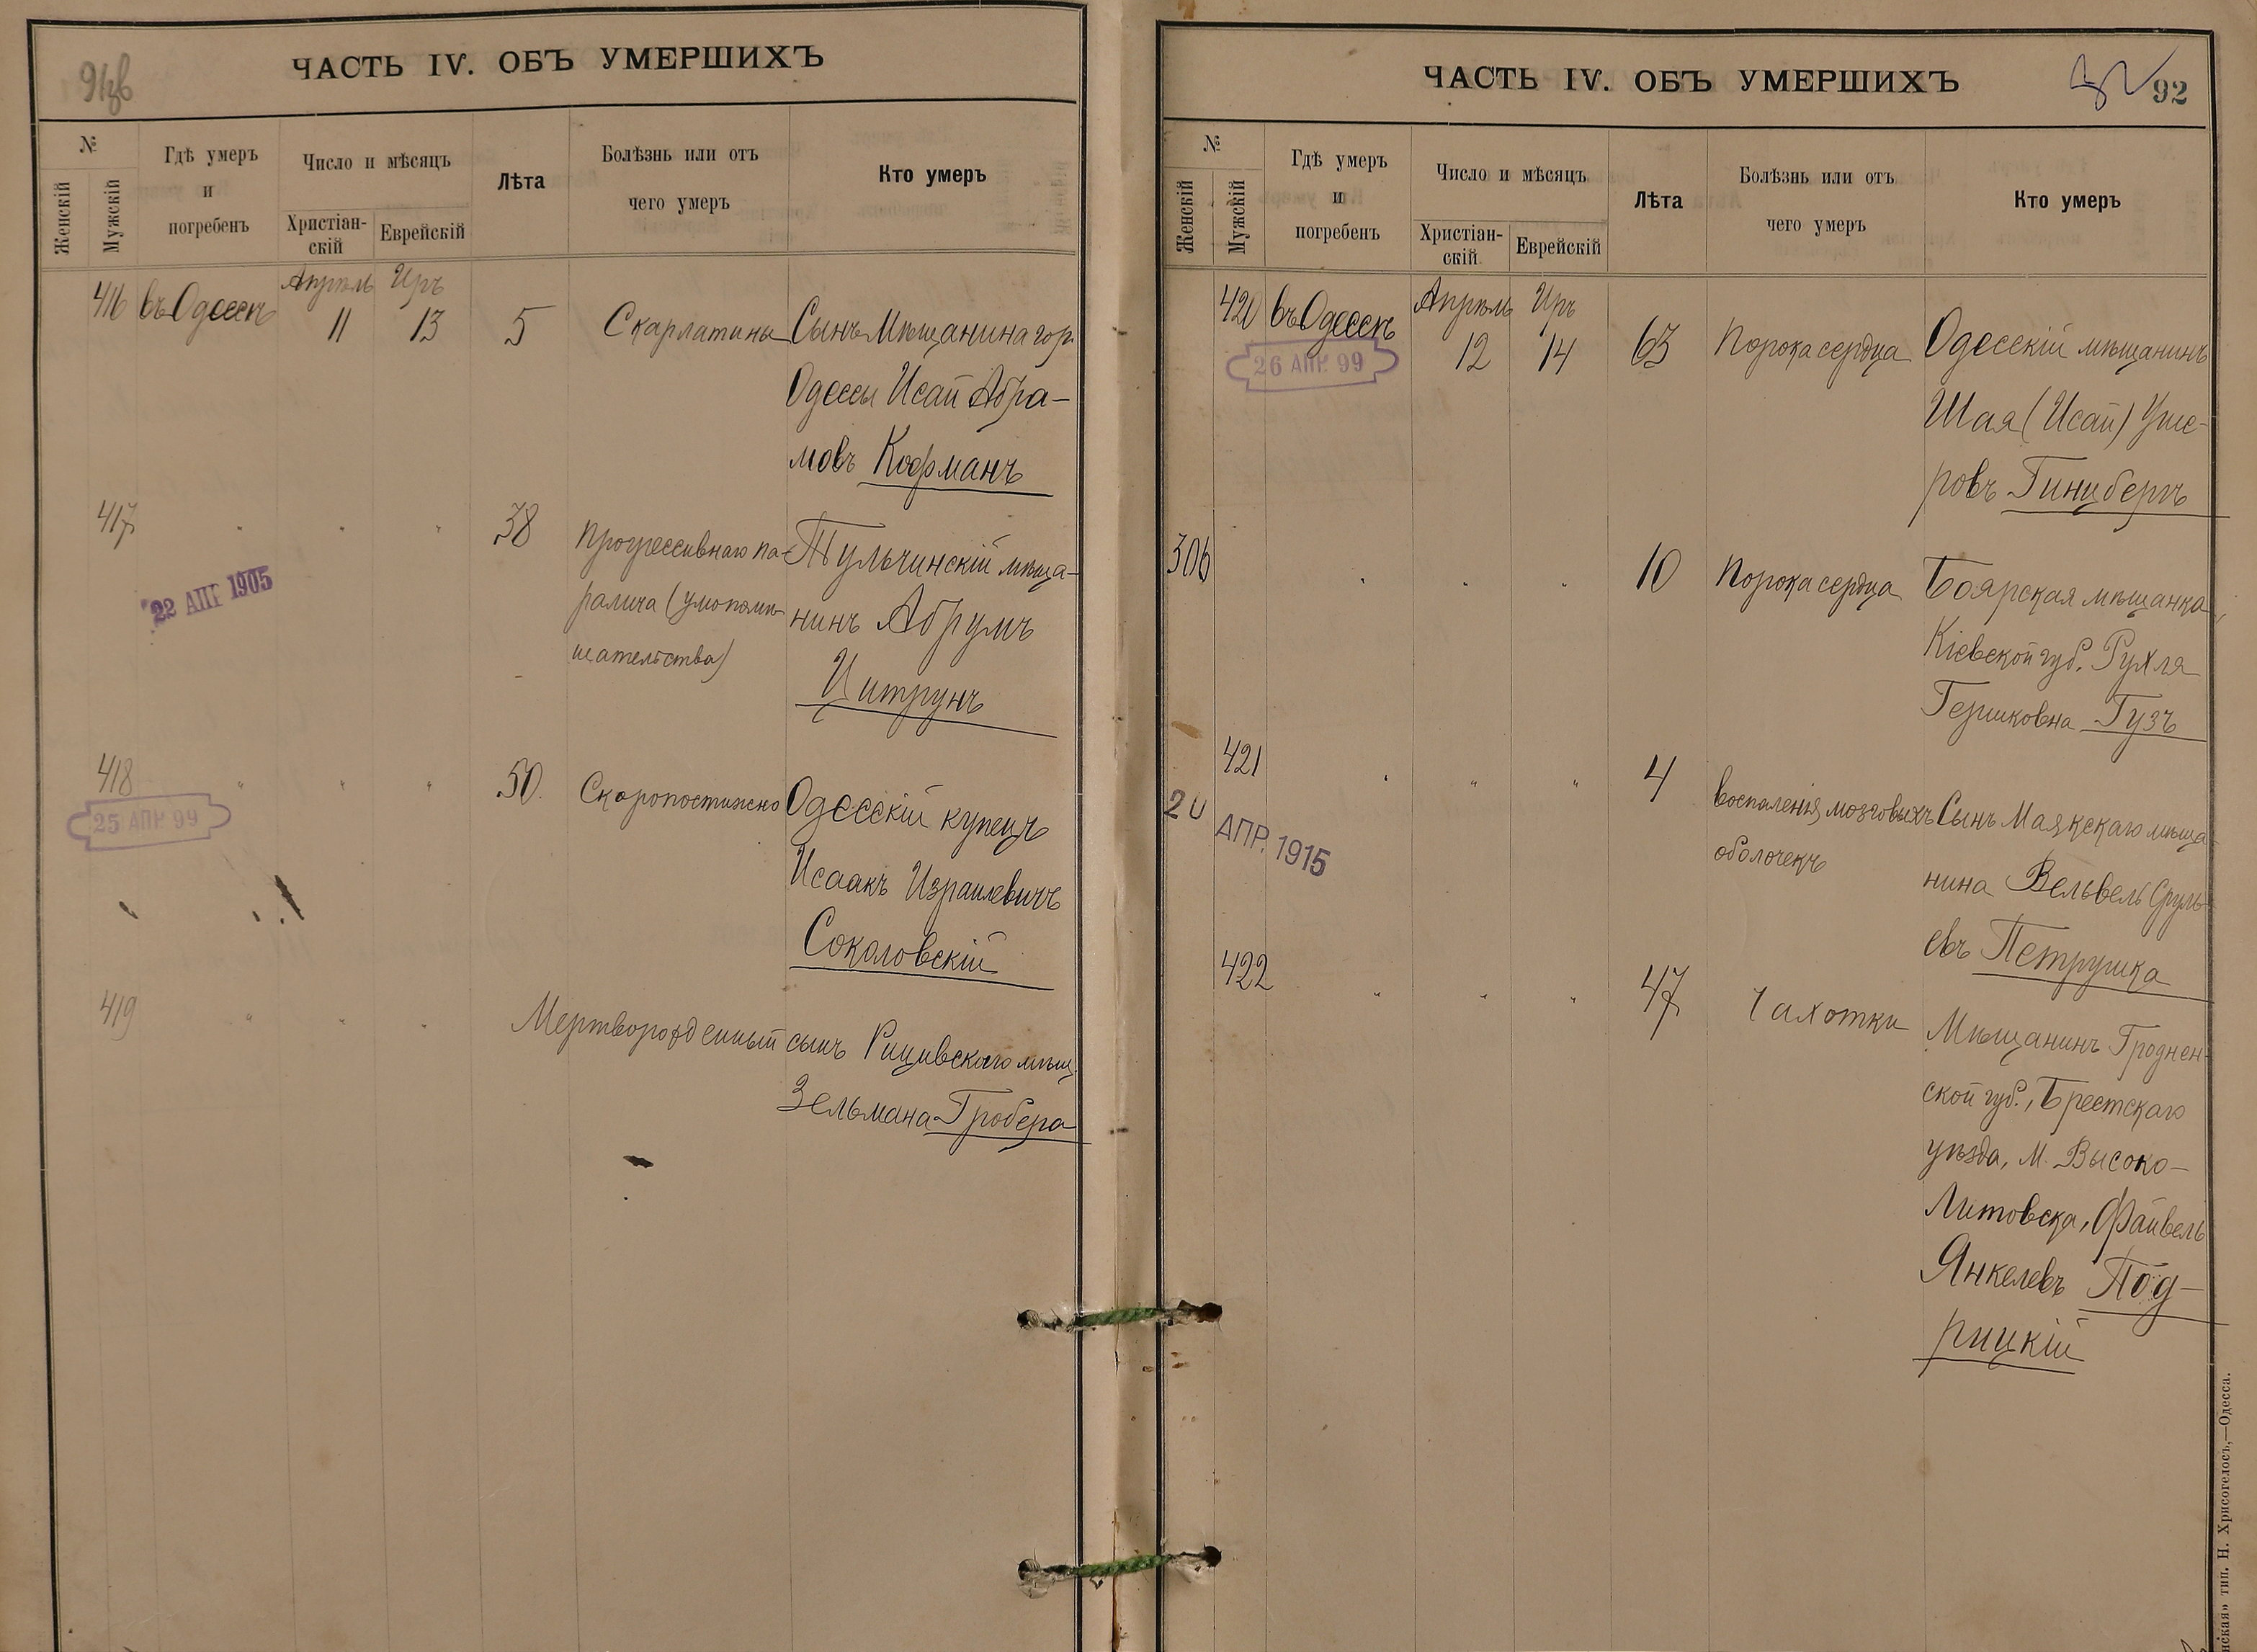 91об
ЧАСТЬ IV. ОБЪ УМЕРШИХЪ
№
Женскій
Мужскій
Гдѣ умеръ
и
погребенъ
Число и мѣсяцъ
Христіан-
скій
Еврейскій
Лѣта
Болѣзнь или отъ
чего умеръ
Кто умеръ
416 въ Одессѣ Апрѣль 11 Иръ 13 5 Скарлатины Сынъ Мѣщанина гор.
Одессы Исай Абра-
мовъ Кофманъ
417 " " " 38 Прогрессивнаго па- Тульчинскій мѣща-
ралича (умопомѣ- нинъ Абрумъ
шательства) Цитрунъ
22 АПР 1905
418 " " " 50. Скоропостижно Одесскій купецъ
25 АПР. 99
Исаакъ Израилевичъ
Соколовскій
419 " " " Мертворожденный сынъ Рицивскаго мѣщ.
Зельмана Гробера
ЧАСТЬ IV. ОБЪ УМЕРШИХЪ
92
№
Женскій
Мужскій
Гдѣ умеръ
и
погребенъ
Число и мѣсяцъ
Христіан-
скій
Еврейскій
Лѣта
Болѣзнь или отъ
чего умеръ
Кто умеръ
420 въ Одессѣ Апрѣль 12 Иръ 14 63 Порока сердца Одесскій мѣщанинъ
26 АПР. 99
Шая (Исай) Уше-
ровъ Гинцбергъ
306 " " " 10 Порока сердца Боярская мѣщанка
Кіевской губ. Рухля
Гершковна Гузъ
421 " " " 4 воспаленія мозговыхъ Сынъ Маякскаго мѣща
оболочекъ нина Вельвель Сруль-
евъ Петрушка
20 АПР. 1915
422 " " " 47 Чахотки Мѣщанинъ Гроднен-
ской губ., Брестскаго
уѣзда, М. Высоко-
Литовска, Файвель
Янкелевъ Под-
рицкій
тип. Н. Хрисогелосъ,—Одесса.